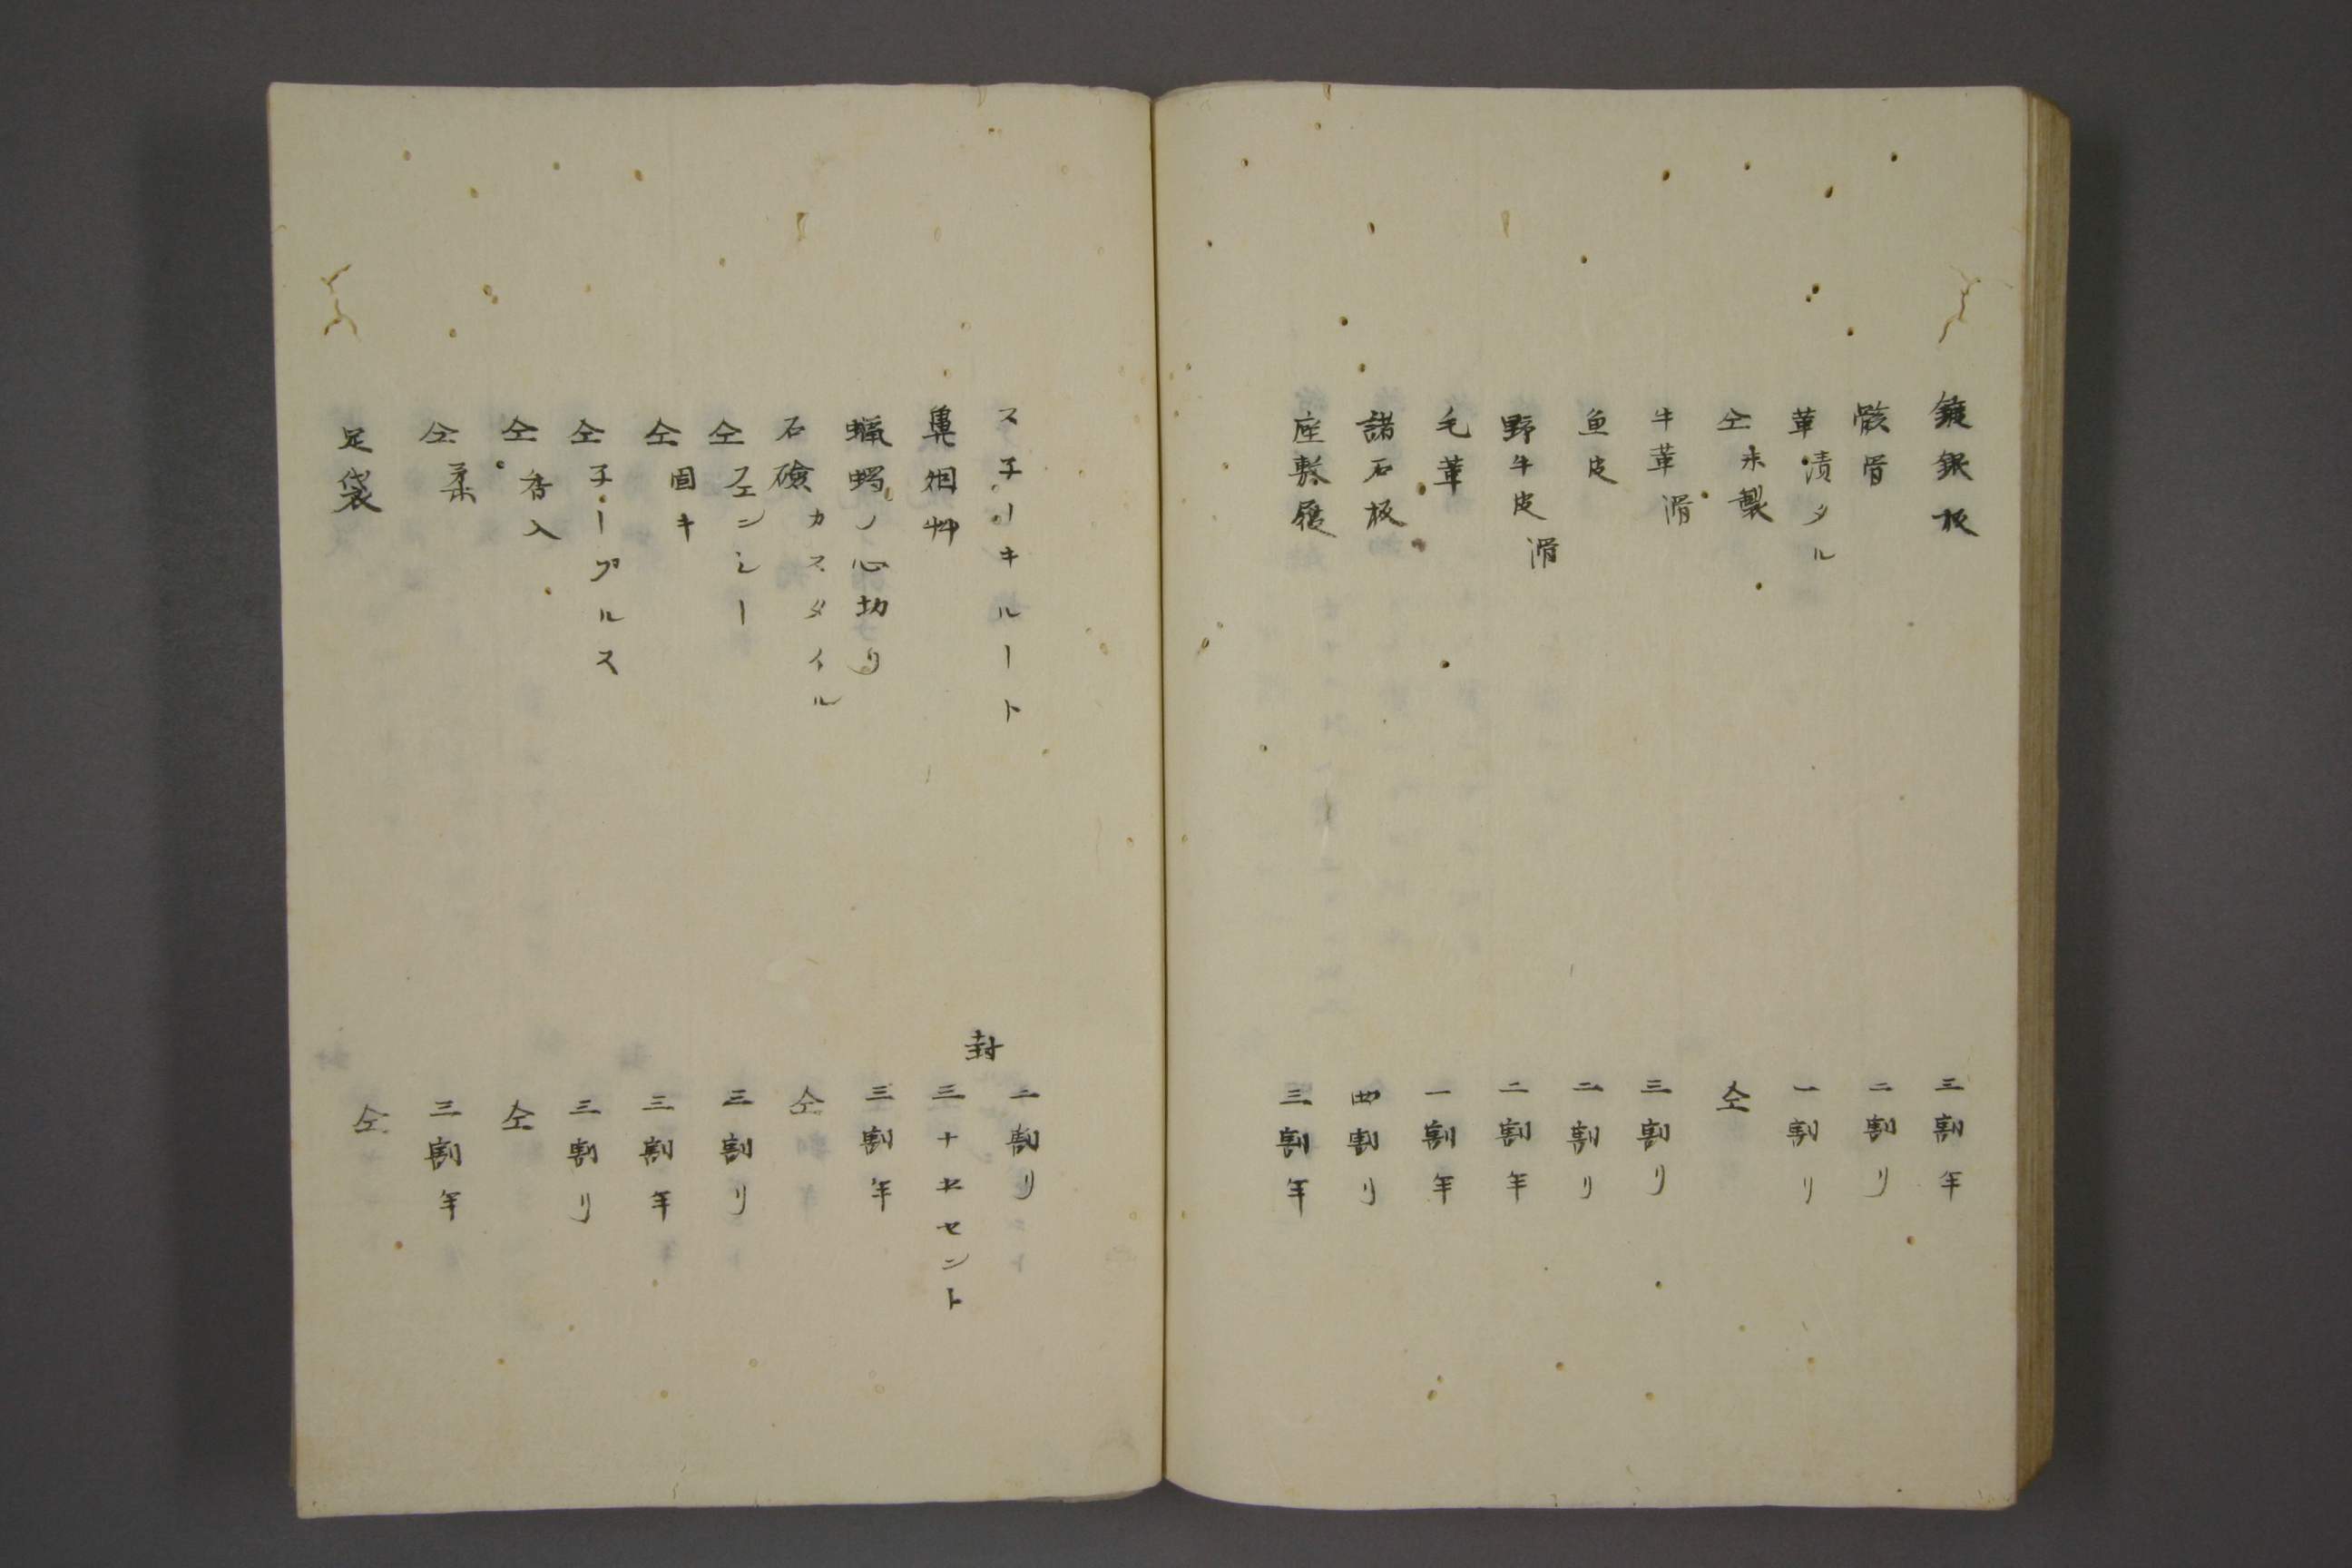 鍍銀板 三割半
骸骨 二割リ
革漬タル 一割リ
仝未製 仝
牛革滑 三割リ
魚皮 二割リ
野牛皮滑 二割半
毛革 一割半
諸石板 四割リ
座敷履 三割半
ス子ーキルート 二割リ
鼻烟艸 封 三十五セント
蝋蠋ノ心切リ 三割半
石礆カスタイル 仝
仝フエンシー 三割リ
仝固キ 三割半
仝子ープルス 三割リ
仝香入 仝
仝柔 三割半
足袋 仝